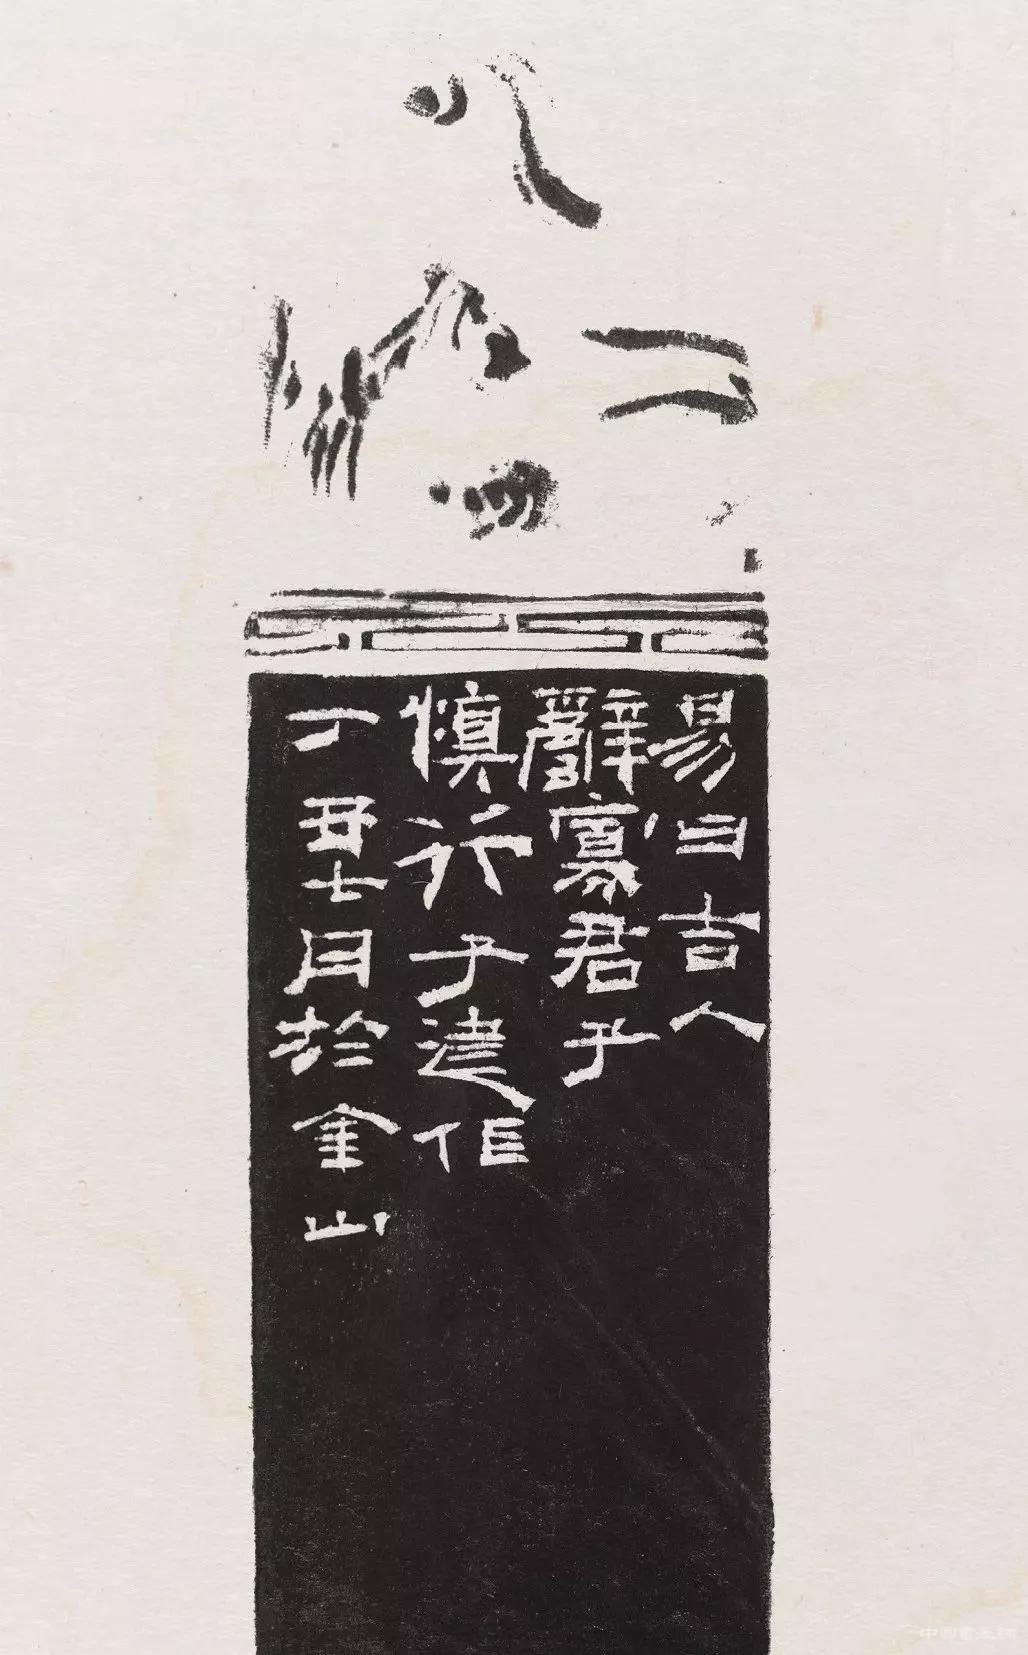 易曰吉人
辭寡君子
慎行子建作
丁丑七月於金山